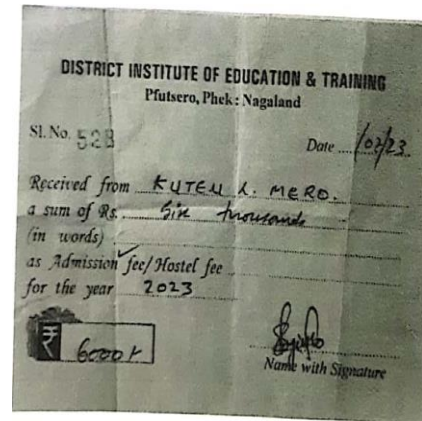 DISTRICT INSTITUTE OF EDUCATION & TRAINING
Pfutsero, Phek : Nagaland
Sl. No. 528 Date /02/23
Received from KUTEU L. MERO.
a sum of Rs. Six thousands
(in words)
as Admission fee/Hostel fee
for the year 2023
₹ 6000/
Name with Signature